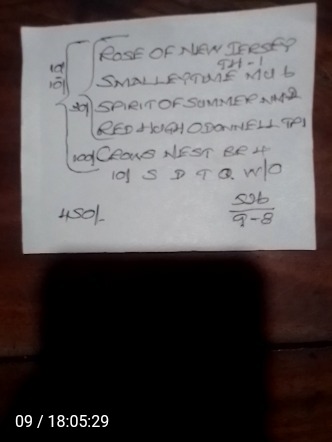 ROSE OF NEW JERSEY
TH-1
SMALLEYTIME MU 6
SPIRIT OF SUMMER NM2
RED HUGH O DONNELL TP1
100/ CROWS NEST BR 4
10/ S D T Q W/O
450/-
526
9-8
09 / 18:05:29